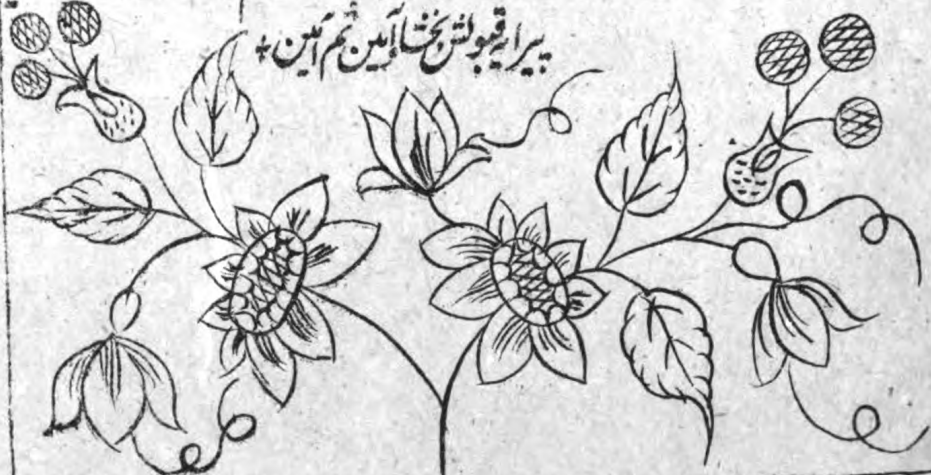 پیرایہ قبولش بخشاد آمین ثم آمین +